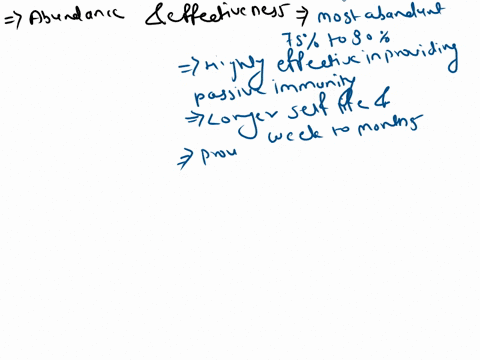 => Abundance & effectiveness => most abandant
75% to 80%
=> Highly effective in providing
passive immunity
=> Longer self life &
week to months
=> prov